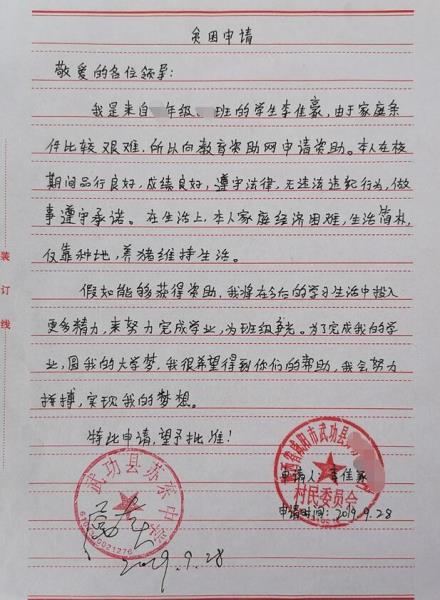 贫困申请
敬爱的各位领导:
我是来自 年级, 班的学生李佳豪,由于家庭条
件比较艰难,所以向教育资助网申请资助。本人在校
期间品行良好,成绩良好,遵守法律,无违法违纪行为,做
事遵守承诺。在生活上,本人家庭经济困难,生活简朴,
仅靠种地,养猪维持生活。
假如能够获得资助,我将在今后的学习生活中投入
更多精力,来努力完成学业,为班级争光。为了完成我的学
业,圆我的大学梦,我很希望得到你们的帮助,我会努力
拼搏,实现我的梦想。
特此申请,望予批准!
装
订
线
武功县苏东中学
2019.9.28
省咸阳市武功县
申请人:李佳豪
村民委员会
申请时间:2019.9.28